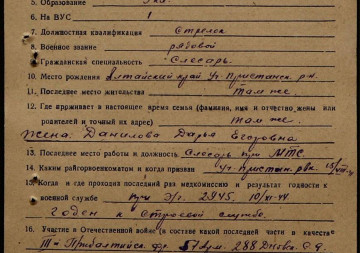 5. Образование
6. На ВУС 1
7. Должностная квалификация Стрелок
8. Военное звание рядовой
9. Гражданская специальность Слесарь
10. Место рождения Алтайский край Уч-Пристанск. р-н
11. Последнее место жительства там же
12. Где проживает в настоящее время семья (фамилия, имя и отчество жены или
родителей и точный их адрес) там же
жена: Данилова Дарья Егоровна
13. Последнее место работы и должность слесарь при МТС
14. Каким райгорвоенкоматом и когда призван Уч-Пристан. рвк
15. Когда и где проходил последний раз медкомиссию и результат годности к
военной службе при Э/г. 2945, 10/XI-44
Годен к строевой службе.
16. Участие в Отечественной войне (в составе какой последней части в качестве
III-Прибалтийск. фр. 288 С.Д.